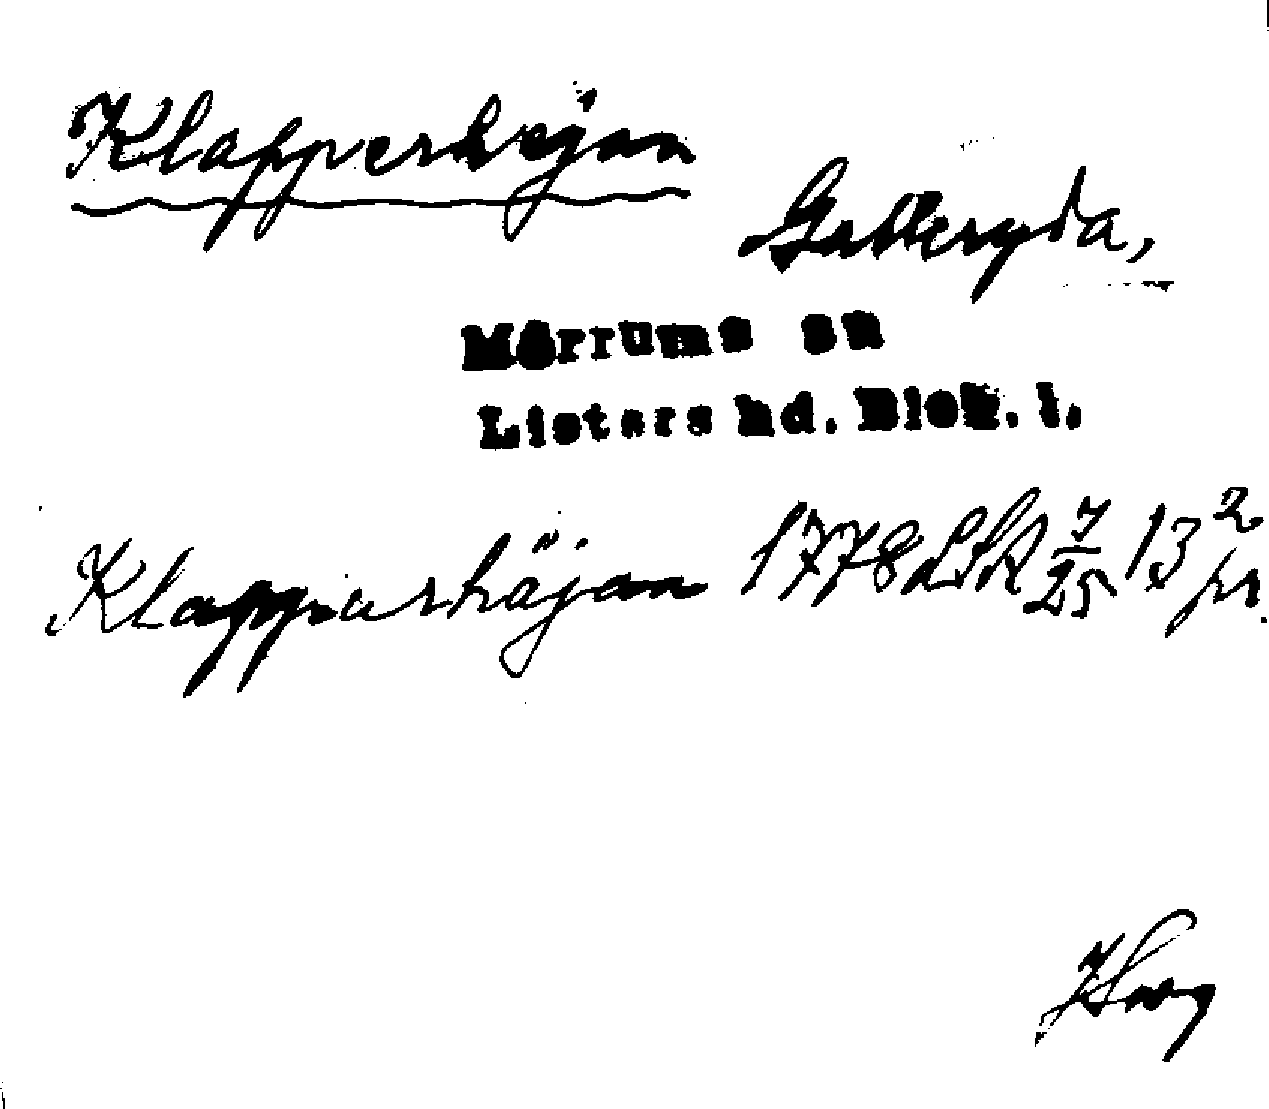 Klapperhejan
Galleryda,
Mörrums sn
Listers hd. Blek. l.
Klapparhäjan 1778 LSK 7/25 13 2 pr.